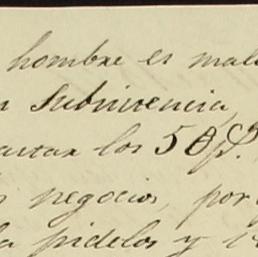 hombre es mal
subvivencia,
los 50 p.
negocios, por
pidelos y